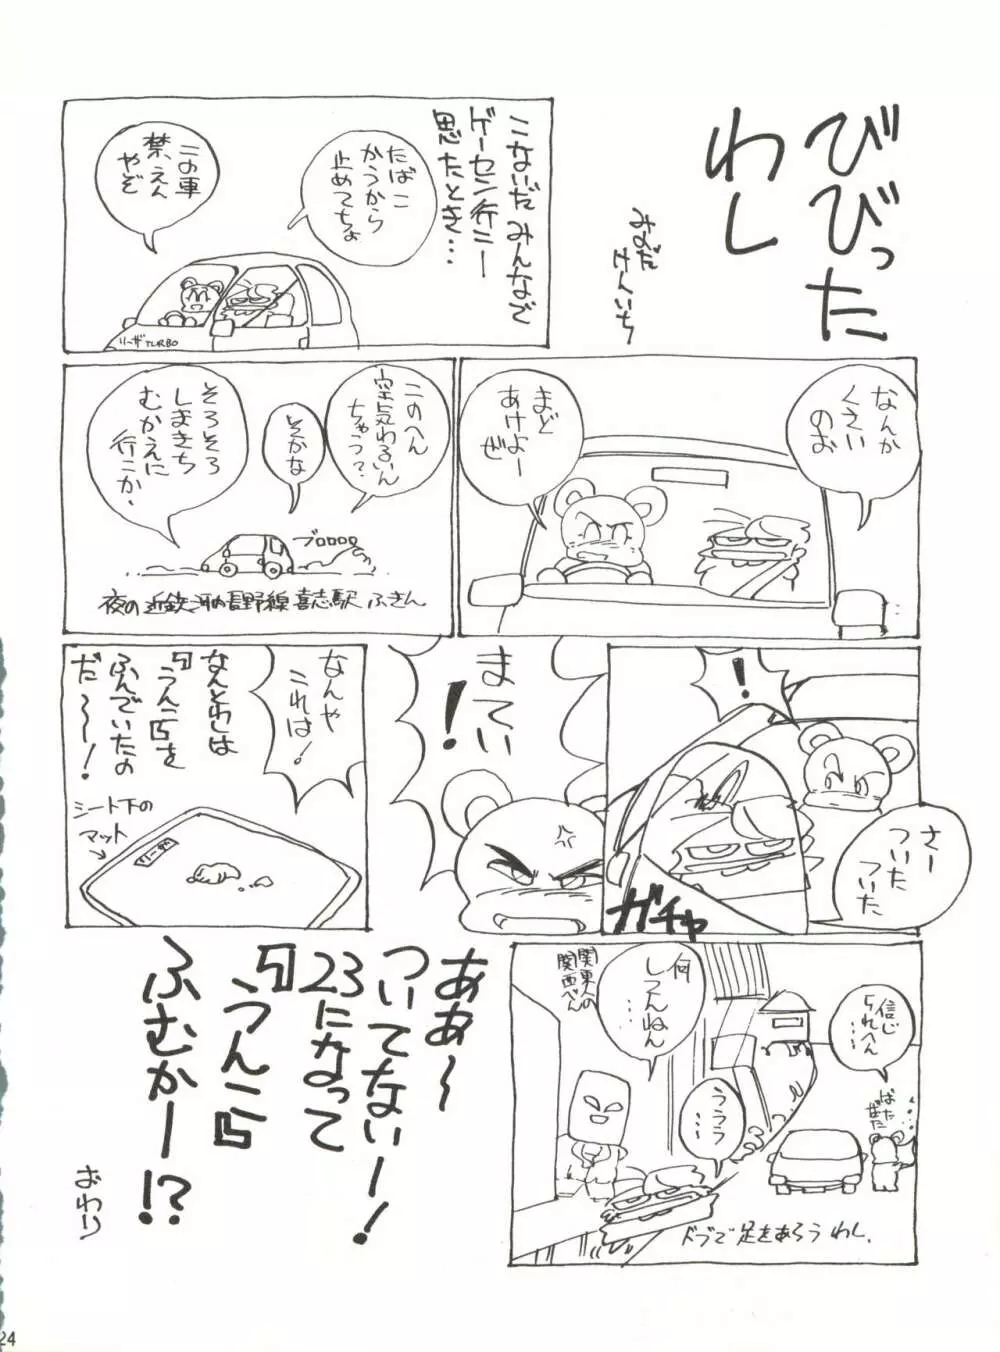 びびった
わし
みのだ
けんいち
こないだみんなで
ゲーセン行こー
思たとき…
たばこ
かうから
止めてちょ
この車
禁えん
やぞ
リーザTURBO
なんか
くさい
のお
まど
あけよー
ぜ
このへん
空気わるいん
ちゃう？
そかな
そろそろ
しまきち
むかえに
行こか.
ブロロロロ
夜の近鉄河内長野線喜志駅ふきん
！
さー
ついた
ついた
ガチャ
まてい
！
なんや
これは！
なんとわしは
『うんこ』を
ふんでいたの
だ〜〜！
シート下の
マット
リーザ
関東人の
関西べん
何
しつんねん
…
信じ
られへん
…
ううう
…
ばた
ばた
ドブで足をあろうわし.
ああ〜
ついてないー！
23になって
『うんこ』
ふむかー！？
おわり
24